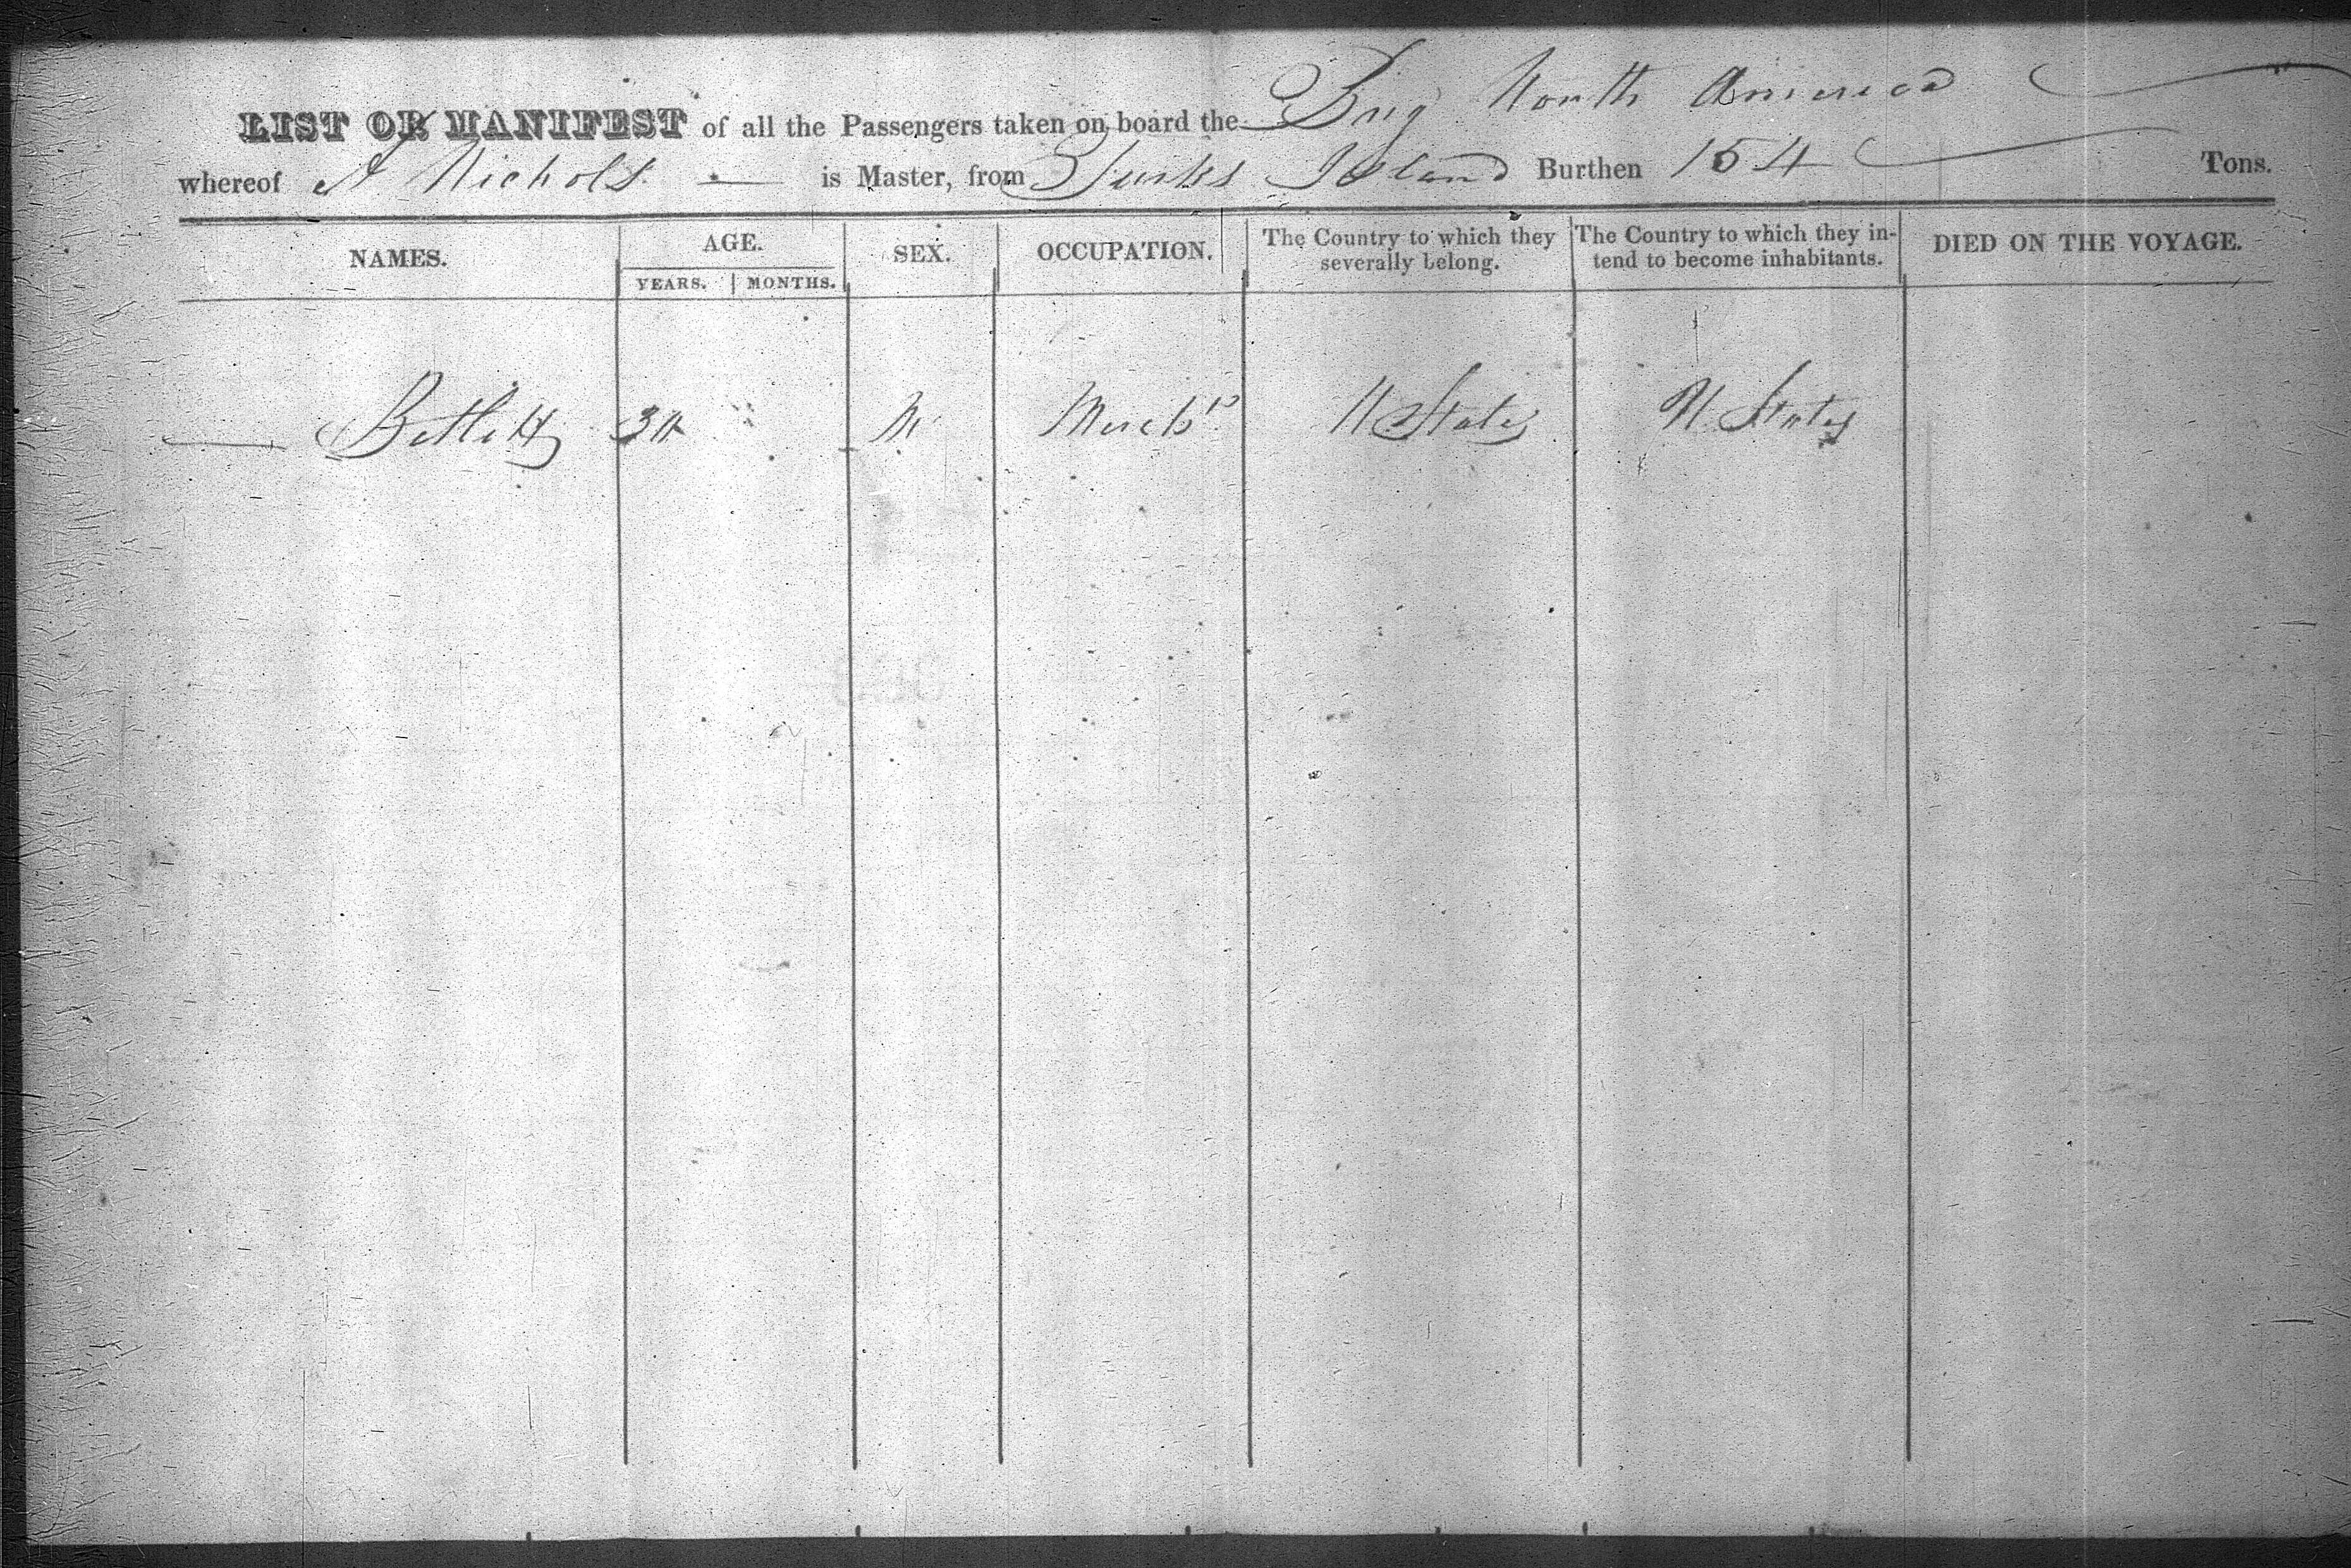 LIST OR MANIFEST of all the Passengers taken on board the Brig North America
whereof A Nichols is Master, from Turks Island Burthen 154 Tons.
NAMES. AGE. SEX. OCCUPATION. The Country to which they severally belong. The Country to which they intend to become inhabitants. DIED ON THE VOYAGE.
YEARS. MONTHS.
M Merch U States U States